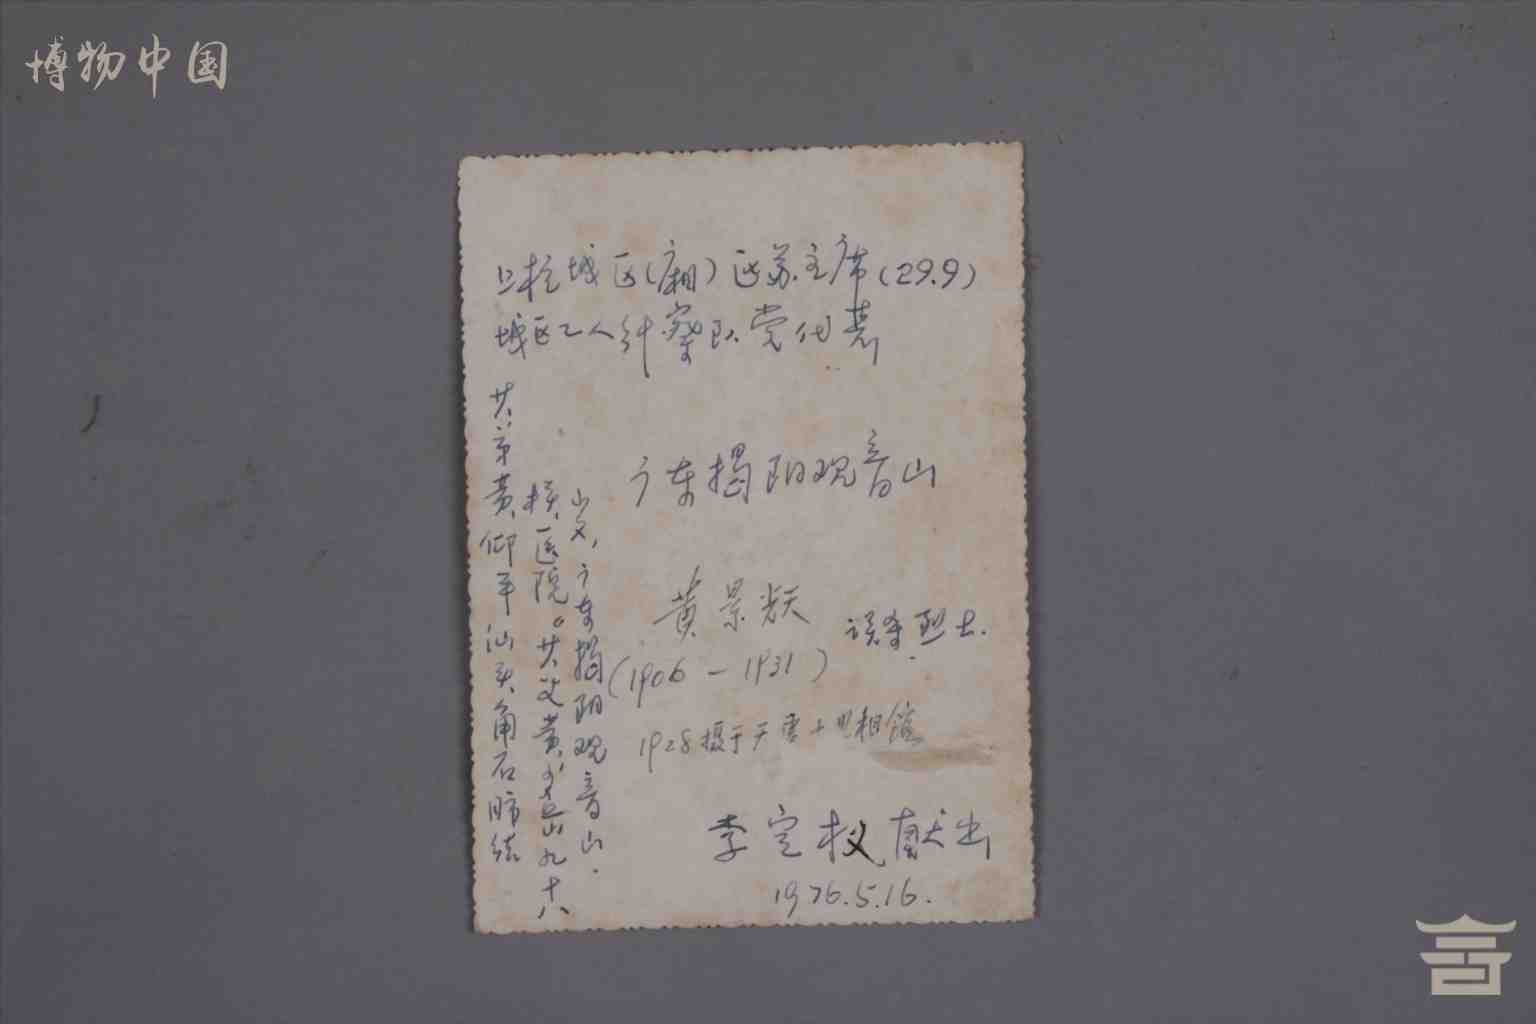 博物中国
上杭城区(廂)区苏主席(29.9)
城区工人纠察队党代表
广东揭阳观音山
黄景
误杀烈士.
(1906－1931)
1928摄于 照相馆
李定权献出
1976.5.16.
共弟黄仰平汕头角石肺结
核医院。共父黄 九十八
岁,广东揭阳观音山.